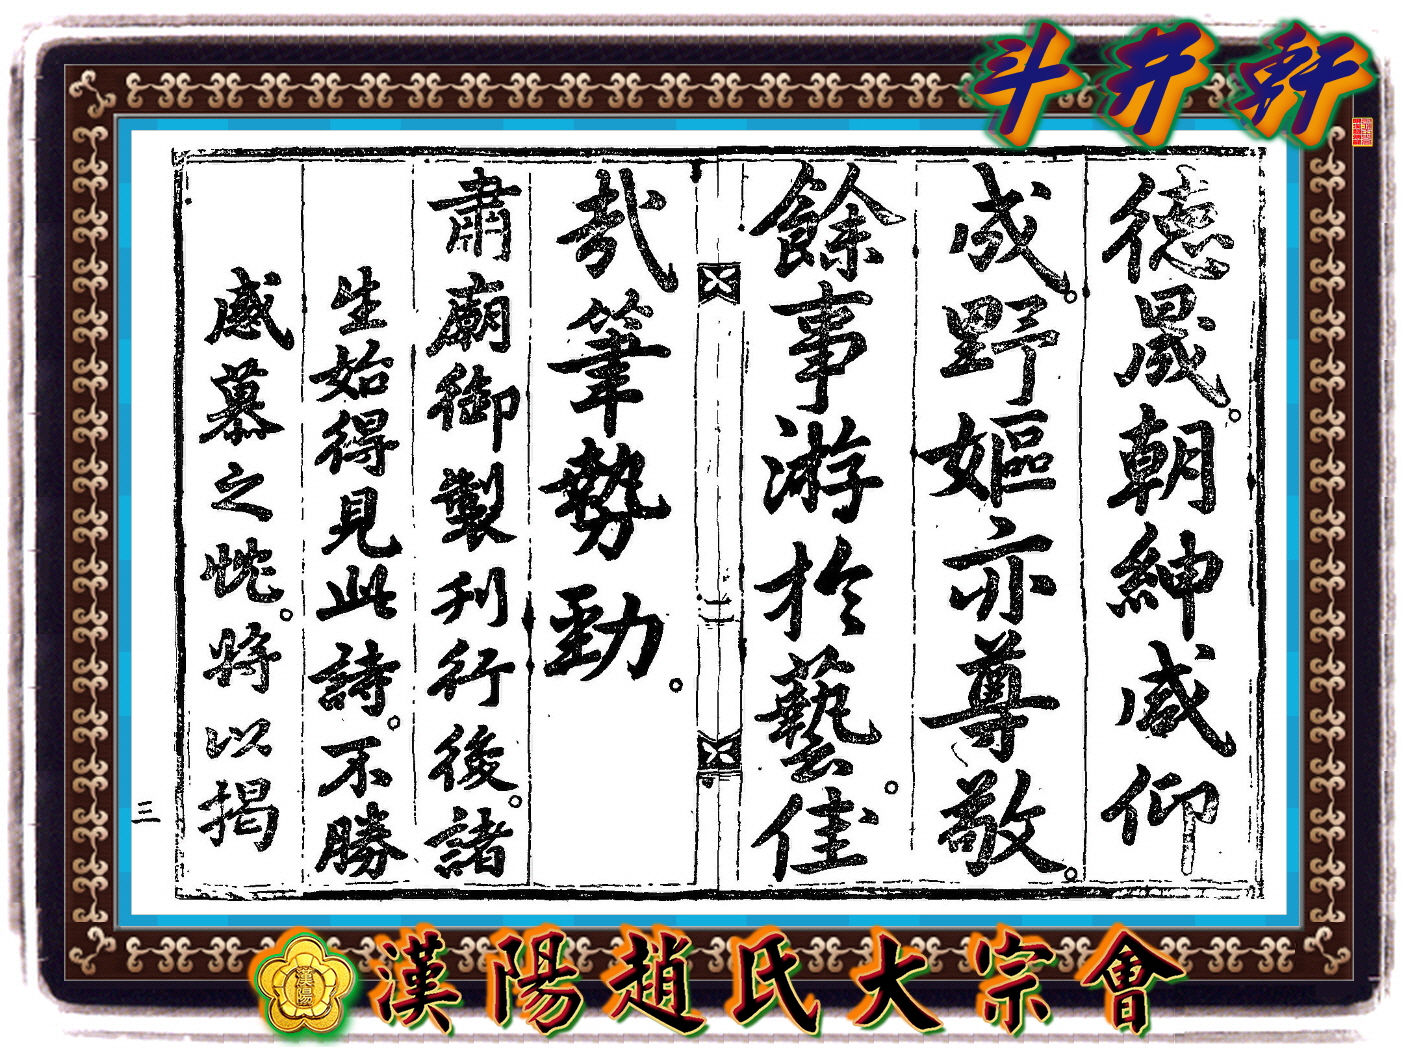 斗井軒
德晟朝紳咸仰
成野嫗亦尊敬
餘事游於藝佳
哉筆勢勁
肅廟御製刊行後諸
生始得見此詩不勝
感慕之忱將以揭
三
漢陽趙氏大宗會
漢陽